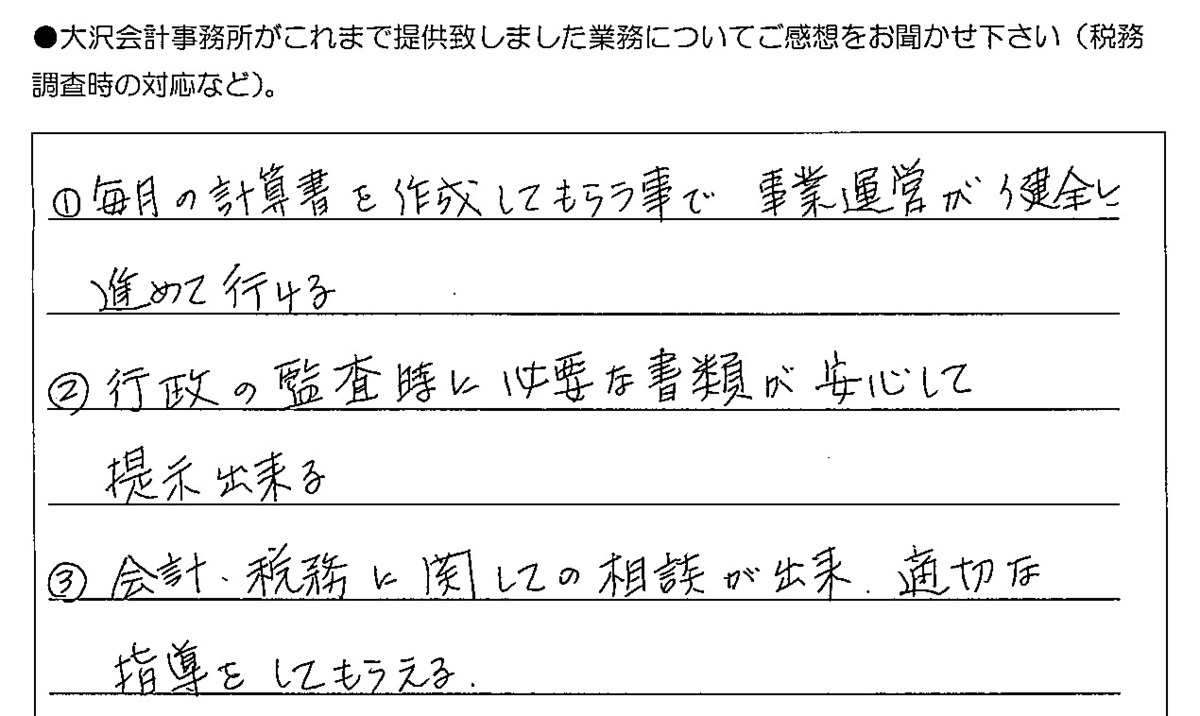 ●大沢会計事務所がこれまで提供致しました業務についてご感想をお聞かせ下さい（税務
調査時の対応など）。
①毎月の計算書を作成してもらう事で 事業運営が健全に
進めて行ける
②行政の監査時に必要な書類が安心して
提示出来る
③会計・税務に関しての相談が出来、適切な
指導をしてもらえる.